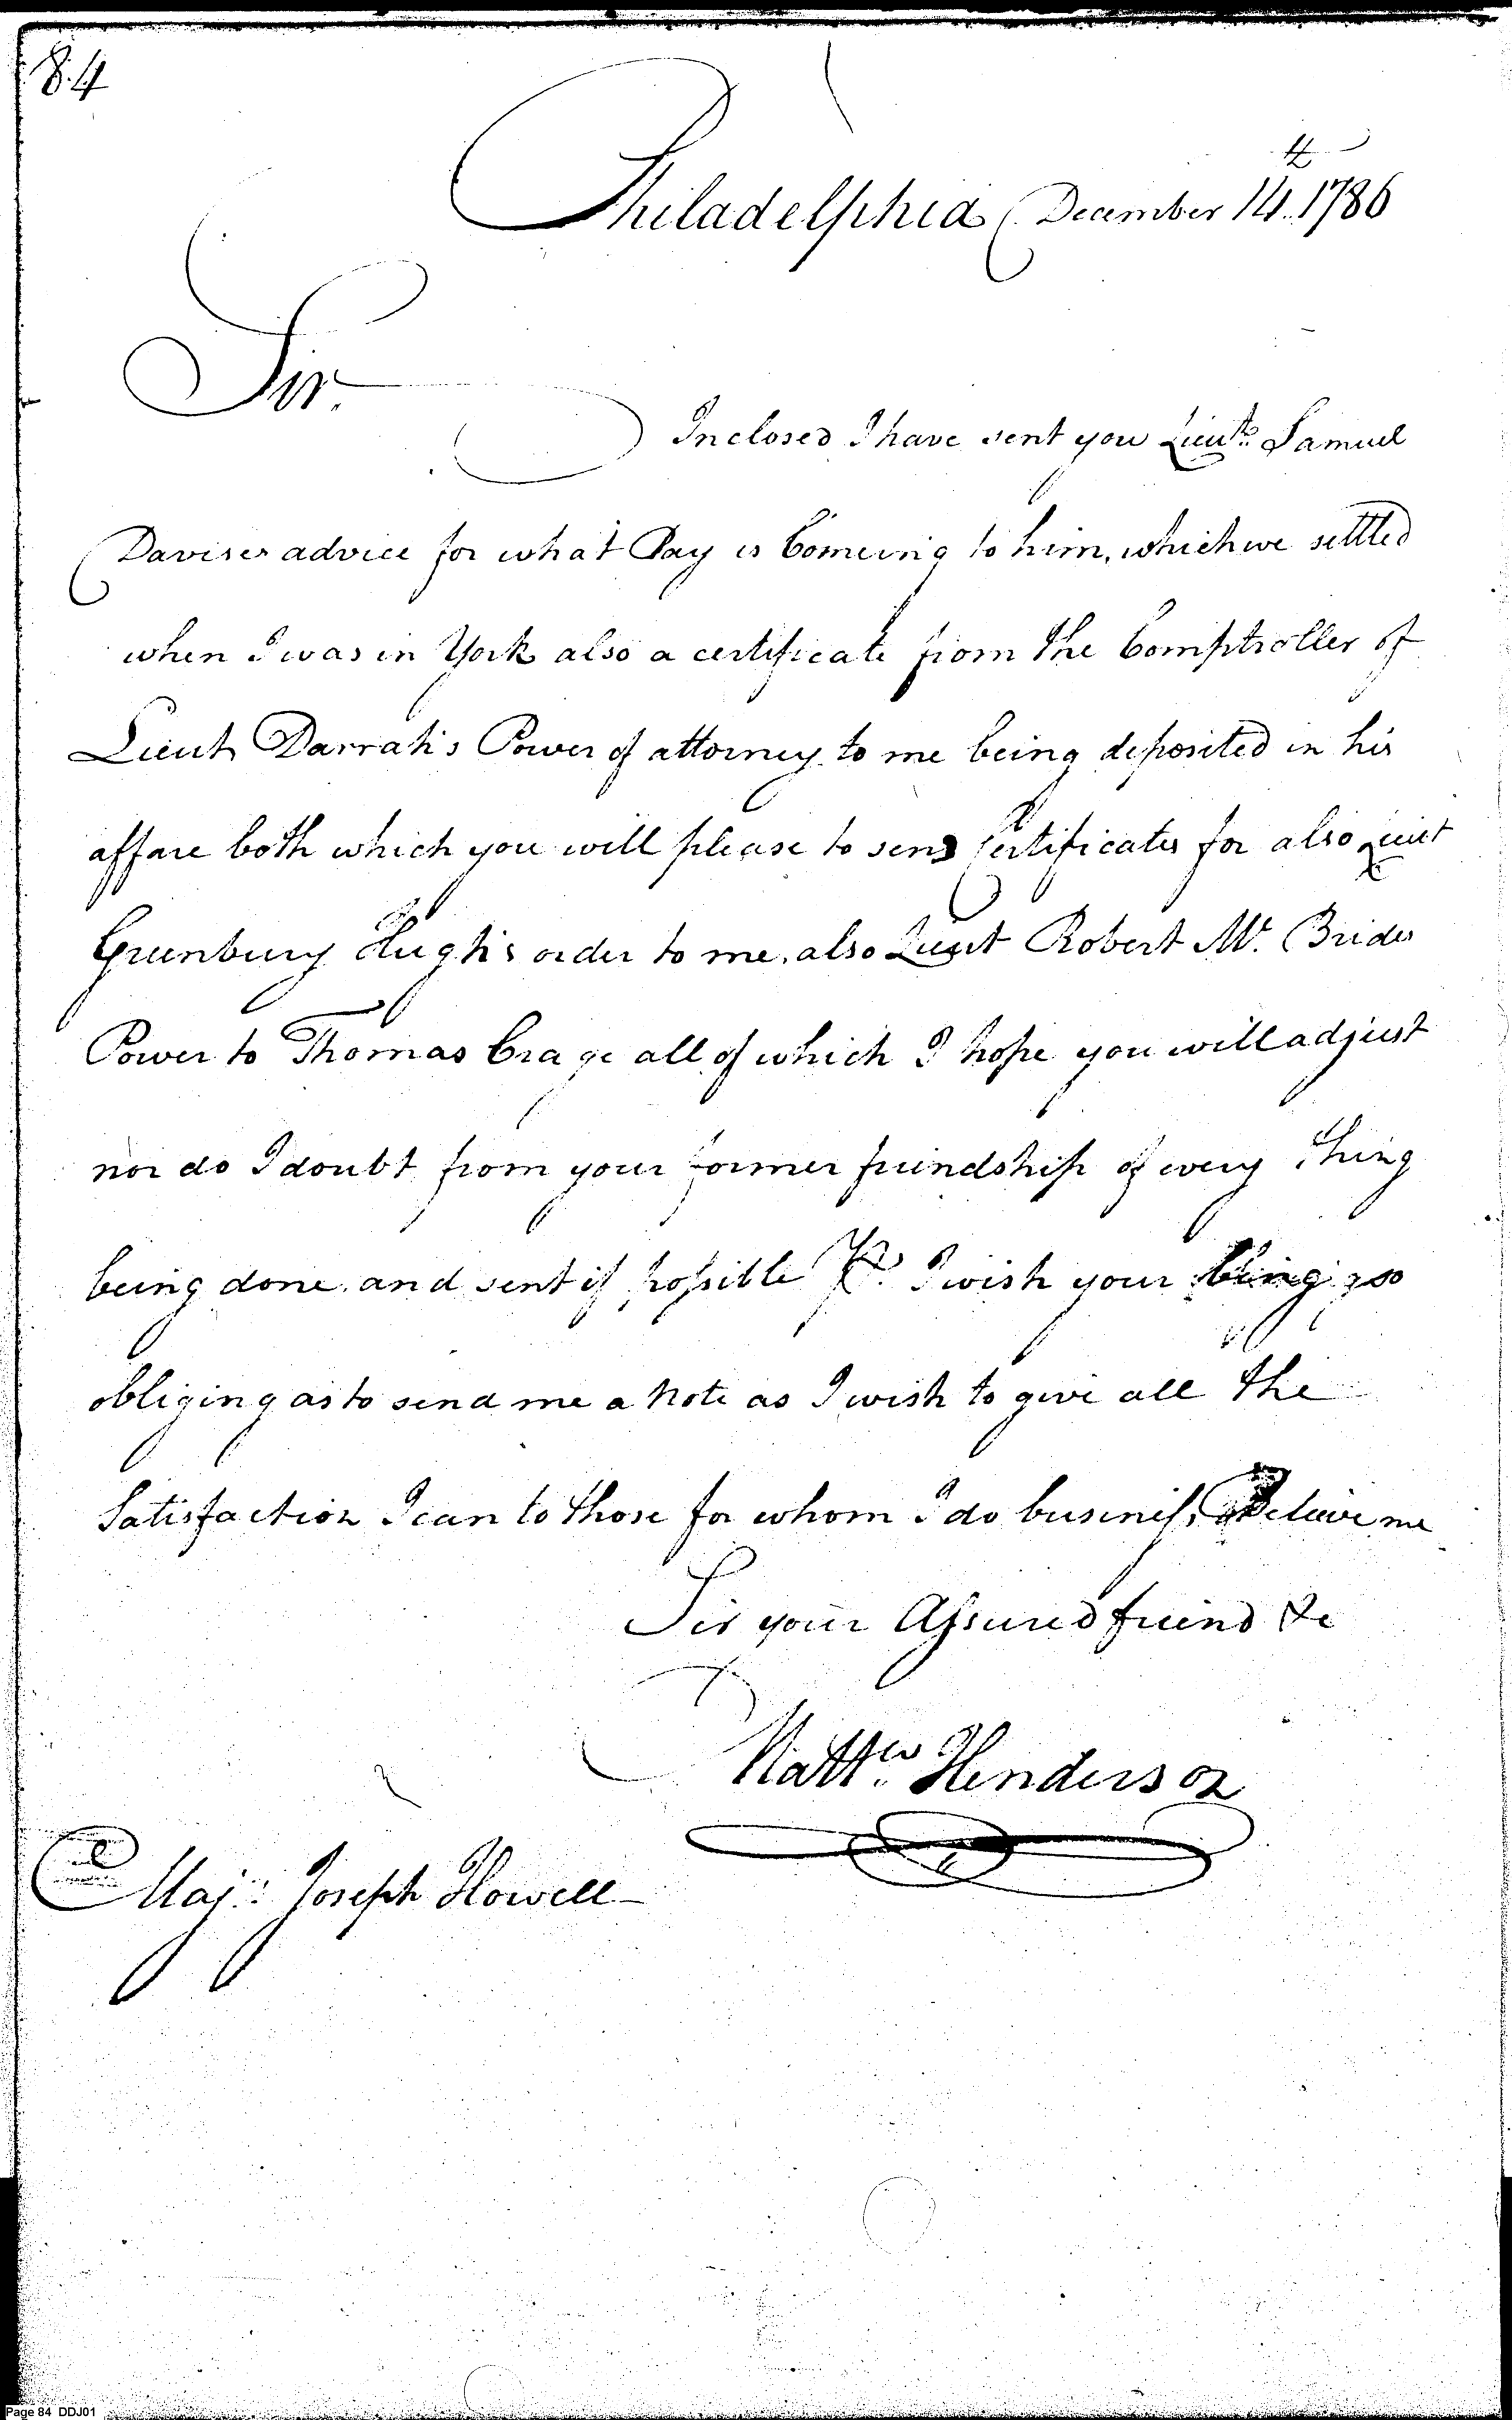 84
Philadelphia December 14th. 1786
Sir.
Inclosed I have sent you Lieuts. Samuel
Davises advice for what Pay is Comeing to him, which we settled
when I was in York also a certificate from the Comptroller of
Lieut Darrah's Power of attorney to me being deposited in his
affare both which you will please to send Certificates for also Lieut
Greenbury Hugh's order to me, also Lieut Robert Mc. Brides
Power to Thomas Crage all of which I hope you will adjust
nor do I doubt from your former friendship of every thing
being done. and sent if possible I wish your being so
obliging as to send me a Note as I wish to give all the
Satisfaction I can to those for whom I do business, Beleive me
Sir your Assured friend &c
Mattw. Henderson
Maj: Joseph Howell
Page 84 DDJ01